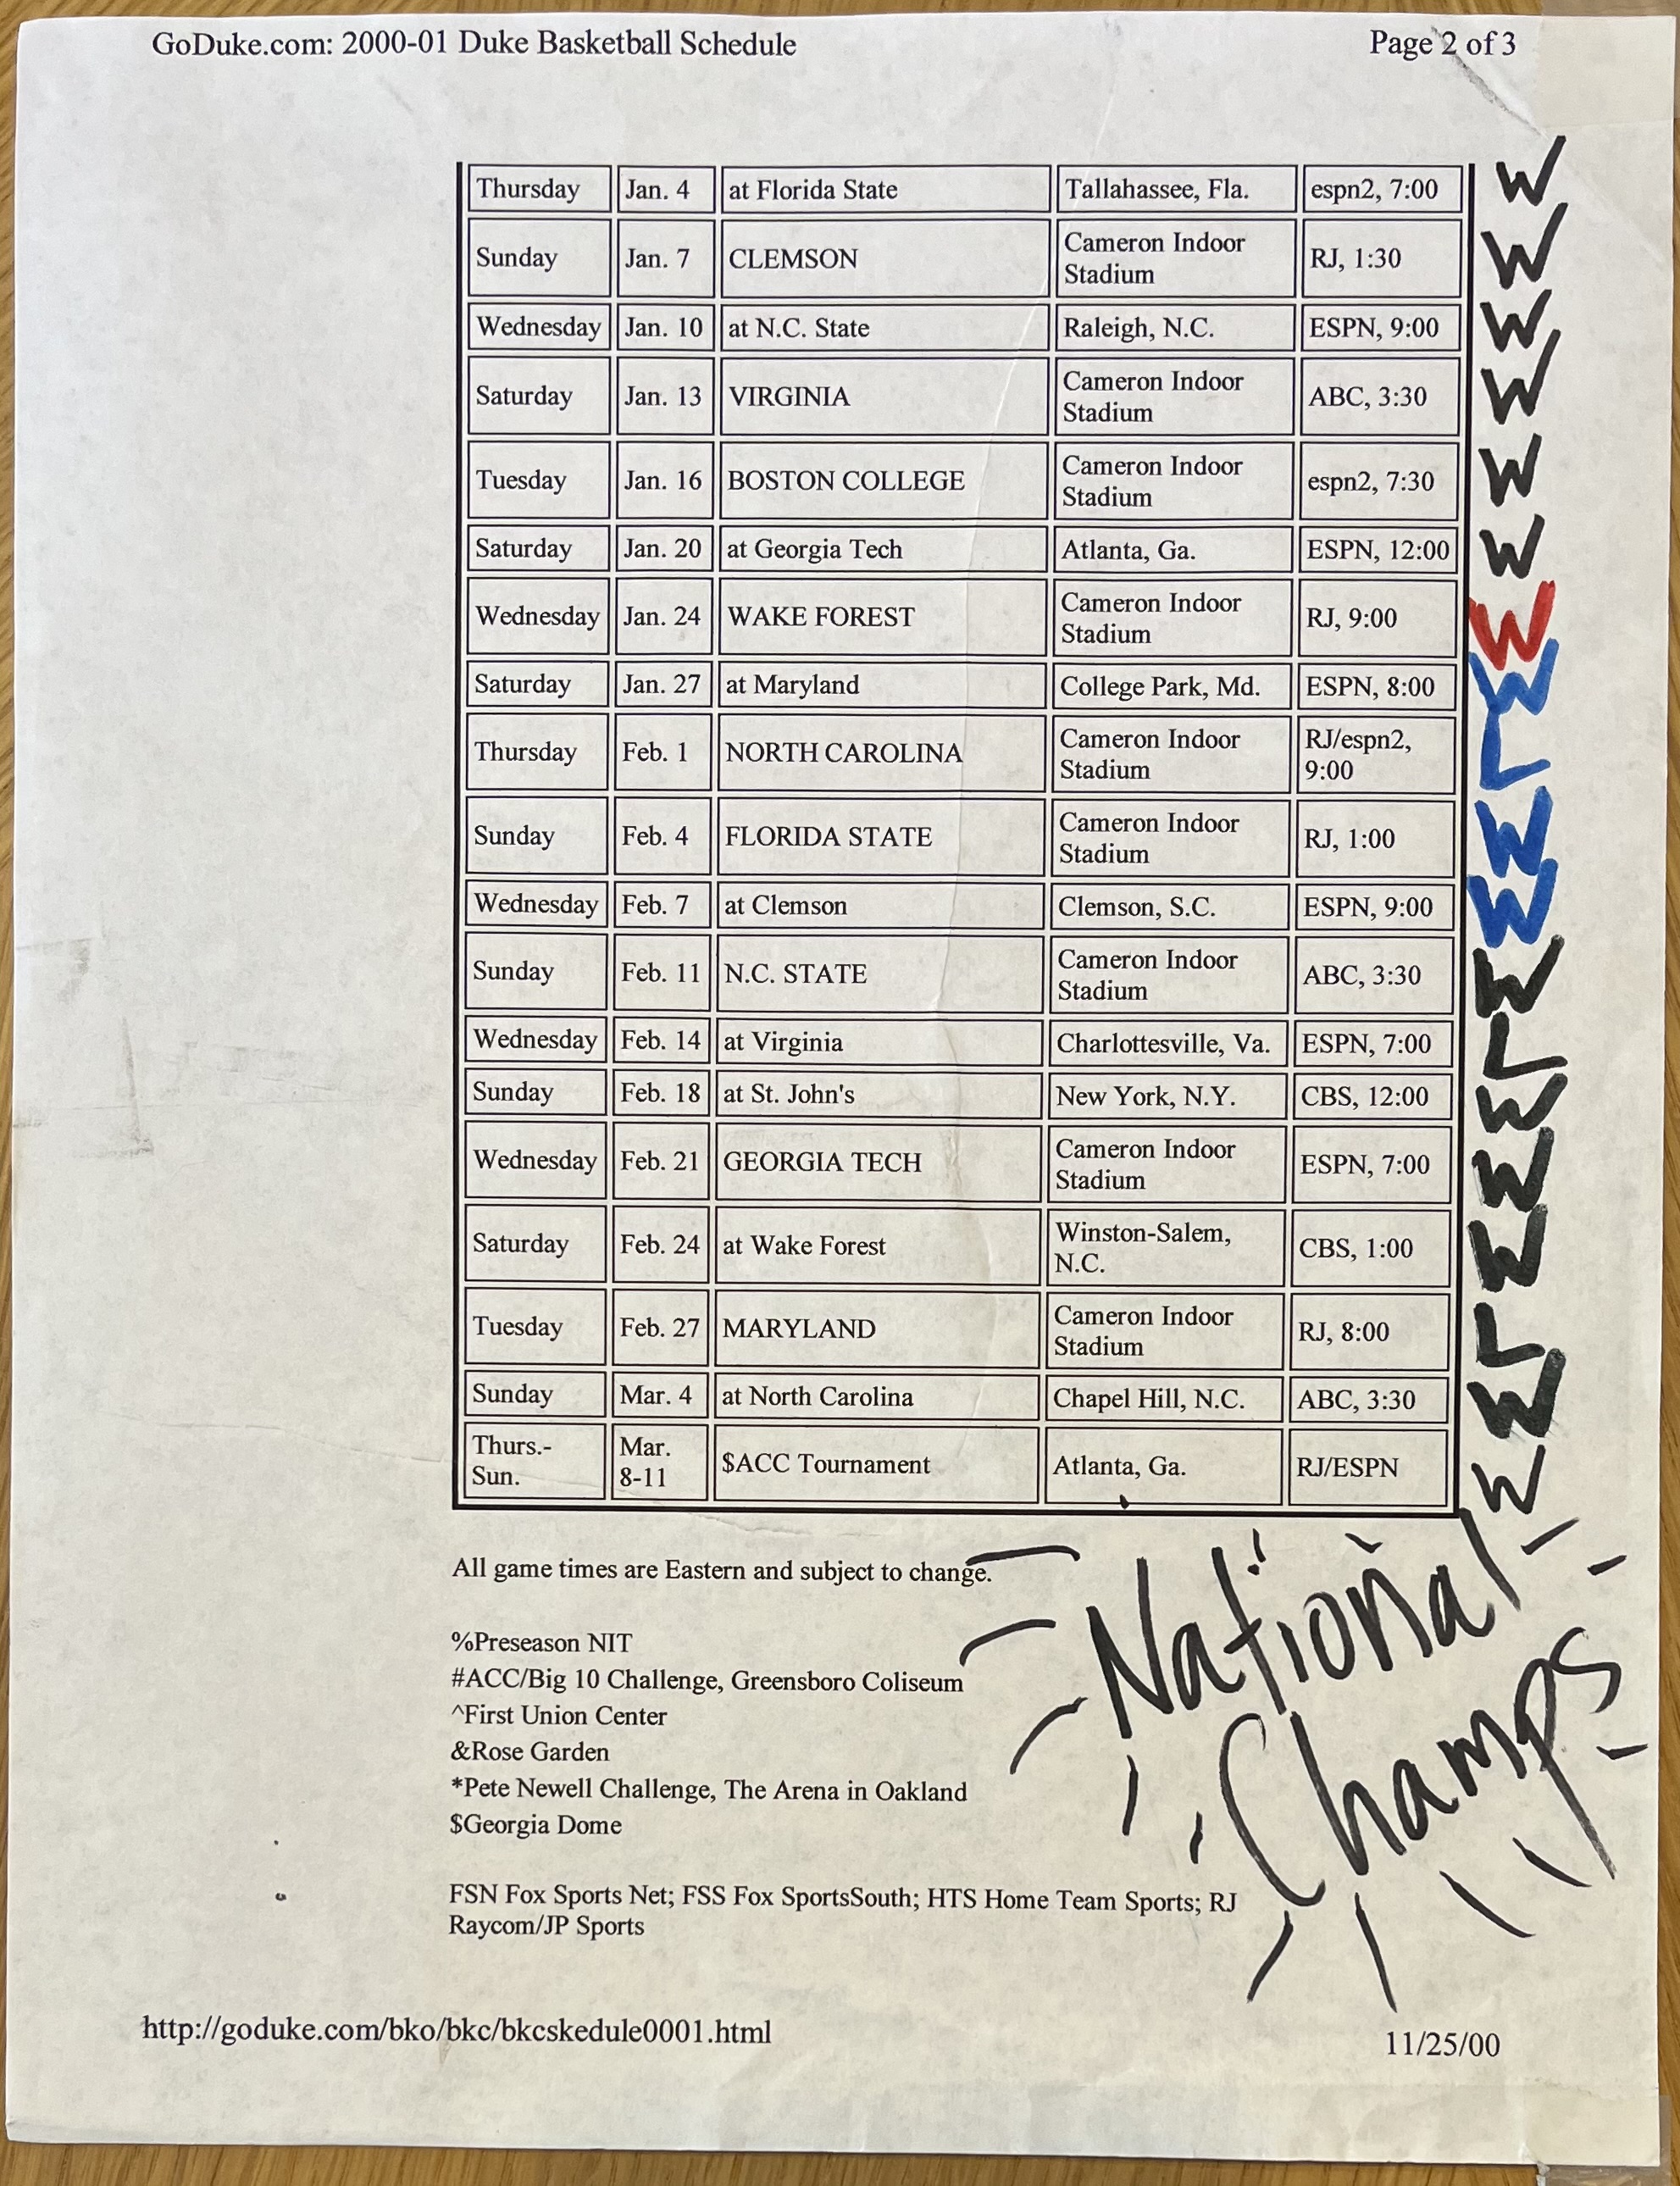 GoDuke.com: 2000-01 Duke Basketball Schedule Page 2 of 3
Thursday Jan. 4 at Florida State Tallahassee, Fla. espn2, 7:00 W
Sunday Jan. 7 CLEMSON Cameron Indoor Stadium RJ, 1:30 W
Wednesday Jan. 10 at N.C. State Raleigh, N.C. ESPN, 9:00 W
Saturday Jan. 13 VIRGINIA Cameron Indoor Stadium ABC, 3:30 W
Tuesday Jan. 16 BOSTON COLLEGE Cameron Indoor Stadium espn2, 7:30 W
Saturday Jan. 20 at Georgia Tech Atlanta, Ga. ESPN, 12:00 W
Wednesday Jan. 24 WAKE FOREST Cameron Indoor Stadium RJ, 9:00 W
Saturday Jan. 27 at Maryland College Park, Md. ESPN, 8:00 W
Thursday Feb. 1 NORTH CAROLINA Cameron Indoor Stadium RJ/espn2, 9:00 L
Sunday Feb. 4 FLORIDA STATE Cameron Indoor Stadium RJ, 1:00 W
Wednesday Feb. 7 at Clemson Clemson, S.C. ESPN, 9:00 W
Sunday Feb. 11 N.C. STATE Cameron Indoor Stadium ABC, 3:30 W
Wednesday Feb. 14 at Virginia Charlottesville, Va. ESPN, 7:00 L
Sunday Feb. 18 at St. John's New York, N.Y. CBS, 12:00 W
Wednesday Feb. 21 GEORGIA TECH Cameron Indoor Stadium ESPN, 7:00 W
Saturday Feb. 24 at Wake Forest Winston-Salem, N.C. CBS, 1:00 W
Tuesday Feb. 27 MARYLAND Cameron Indoor Stadium RJ, 8:00 L
Sunday Mar. 4 at North Carolina Chapel Hill, N.C. ABC, 3:30 W
Thurs.-Sun. Mar. 8-11 $ACC Tournament Atlanta, Ga. RJ/ESPN W
All game times are Eastern and subject to change.
National
Champs
%Preseason NIT
#ACC/Big 10 Challenge, Greensboro Coliseum
^First Union Center
&Rose Garden
*Pete Newell Challenge, The Arena in Oakland
$Georgia Dome
FSN Fox Sports Net; FSS Fox SportsSouth; HTS Home Team Sports; RJ
Raycom/JP Sports
http://goduke.com/bko/bkc/bkcskedule0001.html 11/25/00